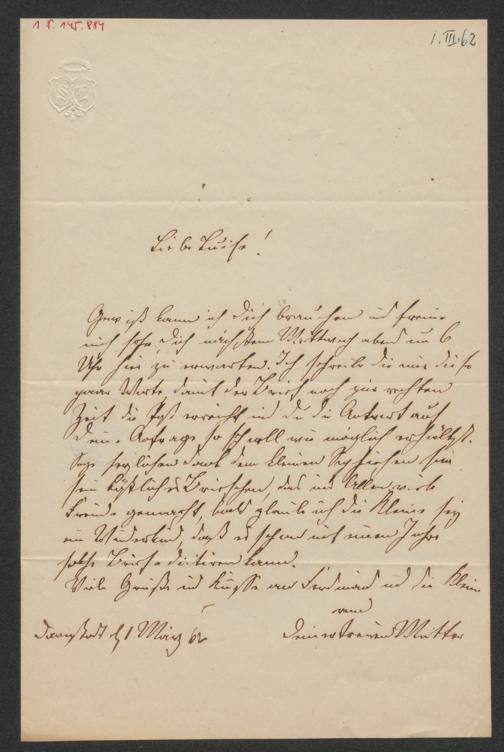 1. III. 62
Liebe Luise!
Gewiß kann ich Dich brauchen und freue
mich sehr Dich nächsten Mittwoch abend um 6
Uhr hier zu erwarten. Ich schreibe dir nur diese
paar Worte damit der Brief noch zur rechten
Zeit die Post erreicht und du die Antwort auf
Deine Anfrage so schnell wie möglich erhältst.
Sage herzlichen Dank dem kleinen Sophiechen für
sein köstliches Briefchen, das uns Allen viele
Freude gemacht hat, glaube ich die Kleine sei
ein Wunderkind, daß es schon mit einem Jahre
solche Briefe dictiren kann.
Viele Grüße und Küsse an Ferdinand und die Kleine
von
Darmstadt d. 1 März 62 Deiner treuen Mutter